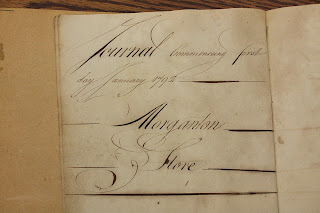 Journal Commencing first
day January 1792
Morganton
Store